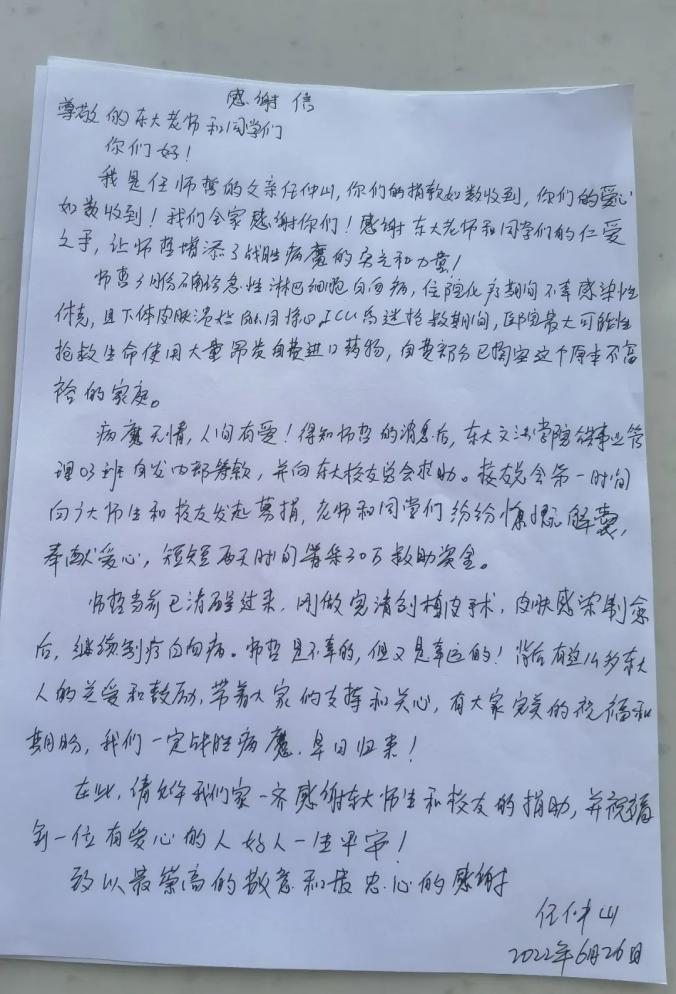 感谢信
尊敬的东大老师和同学们
你们好！
我是任师哲的父亲任仲山，你们的捐款如数收到，你们的爱心
如数收到！我们全家感谢你们！感谢东大老师和同学们的仁爱
之手，让师哲增添了战胜病魔的勇气和力量！
师哲3月份确诊急性淋巴细胞白血病，住院化疗期间不幸感染性
休克，且下体皮肤溃烂 ICU 抢救期间，医院最大可能性
抢救生命使用大量昂贵自费进口药物，自费部分已掏空这个原本不富
裕的家庭。
病魔无情，人间有爱！得知师哲的消息后，东大文法学院公共事业管
理03班自发内部筹款，并向东大校友总会求助。校友总会第一时间
向广大师生和校友发起募捐，老师和同学们纷纷慷慨解囊，
奉献爱心，短短两天时间筹集30万救助资金。
师哲当前已清醒过来，刚做完清创植皮手术，皮肤感染制愈
后，继续制疗白血病。师哲是不幸的，但又是幸运的！背后有这么多东大
人的关爱和鼓励，带着大家的支持和关心，有大家完美的祝福和
期盼，我们一定战胜病魔、早日归来！
在此，请允许我们家一齐感谢东大师生和校友的捐助，并祝福
每一位有爱心的人好人一生平安！
致以最崇高的敬意和最忠心的感谢
任仲山
2022年6月26日